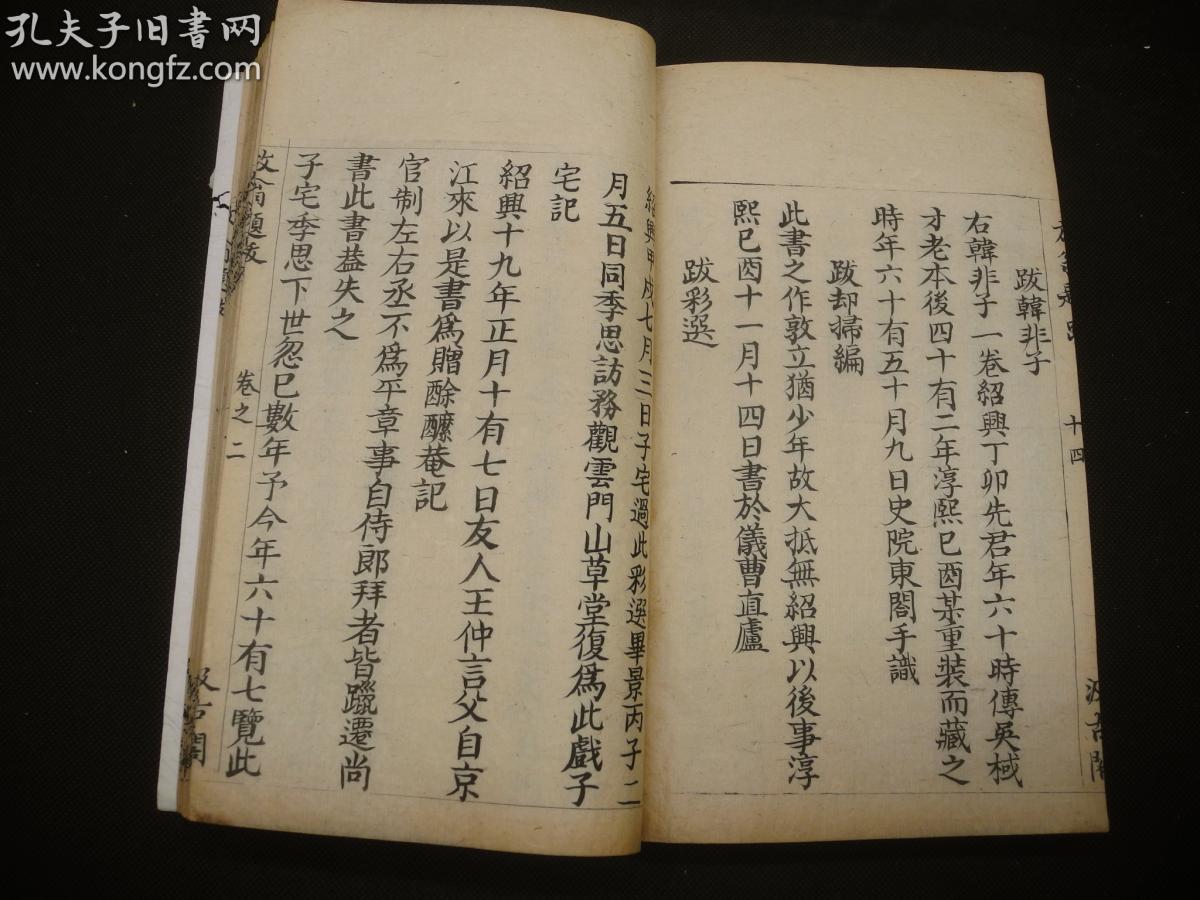 孔夫子旧书网
www.kongfz.com
十四
跋韓非子
右韓非子一卷紹興丁卯先君年六十時傳吳棫
才老本後四十有二年淳熙已酉某重裝而藏之
時年六十有五十月九日史院東閣手識
跋却掃編
此書之作敦立猶少年故大抵無紹興以後事淳
熙已酉十一月十四日書於儀曹直廬
跋彩選
紹興甲戌七月三日子宅過此彩選畢景丙子二
月五日同季思訪務觀雲門山草堂復為此戲子
宅記
紹興十九年正月十有七日友人王仲言父自京
江來以是書為贈酴醾菴記
官制左右丞不為平章事自侍郎拜者皆躐遷尚
書此書葢失之
子宅季思下世忽已數年予今年六十有七覽此
卷之二